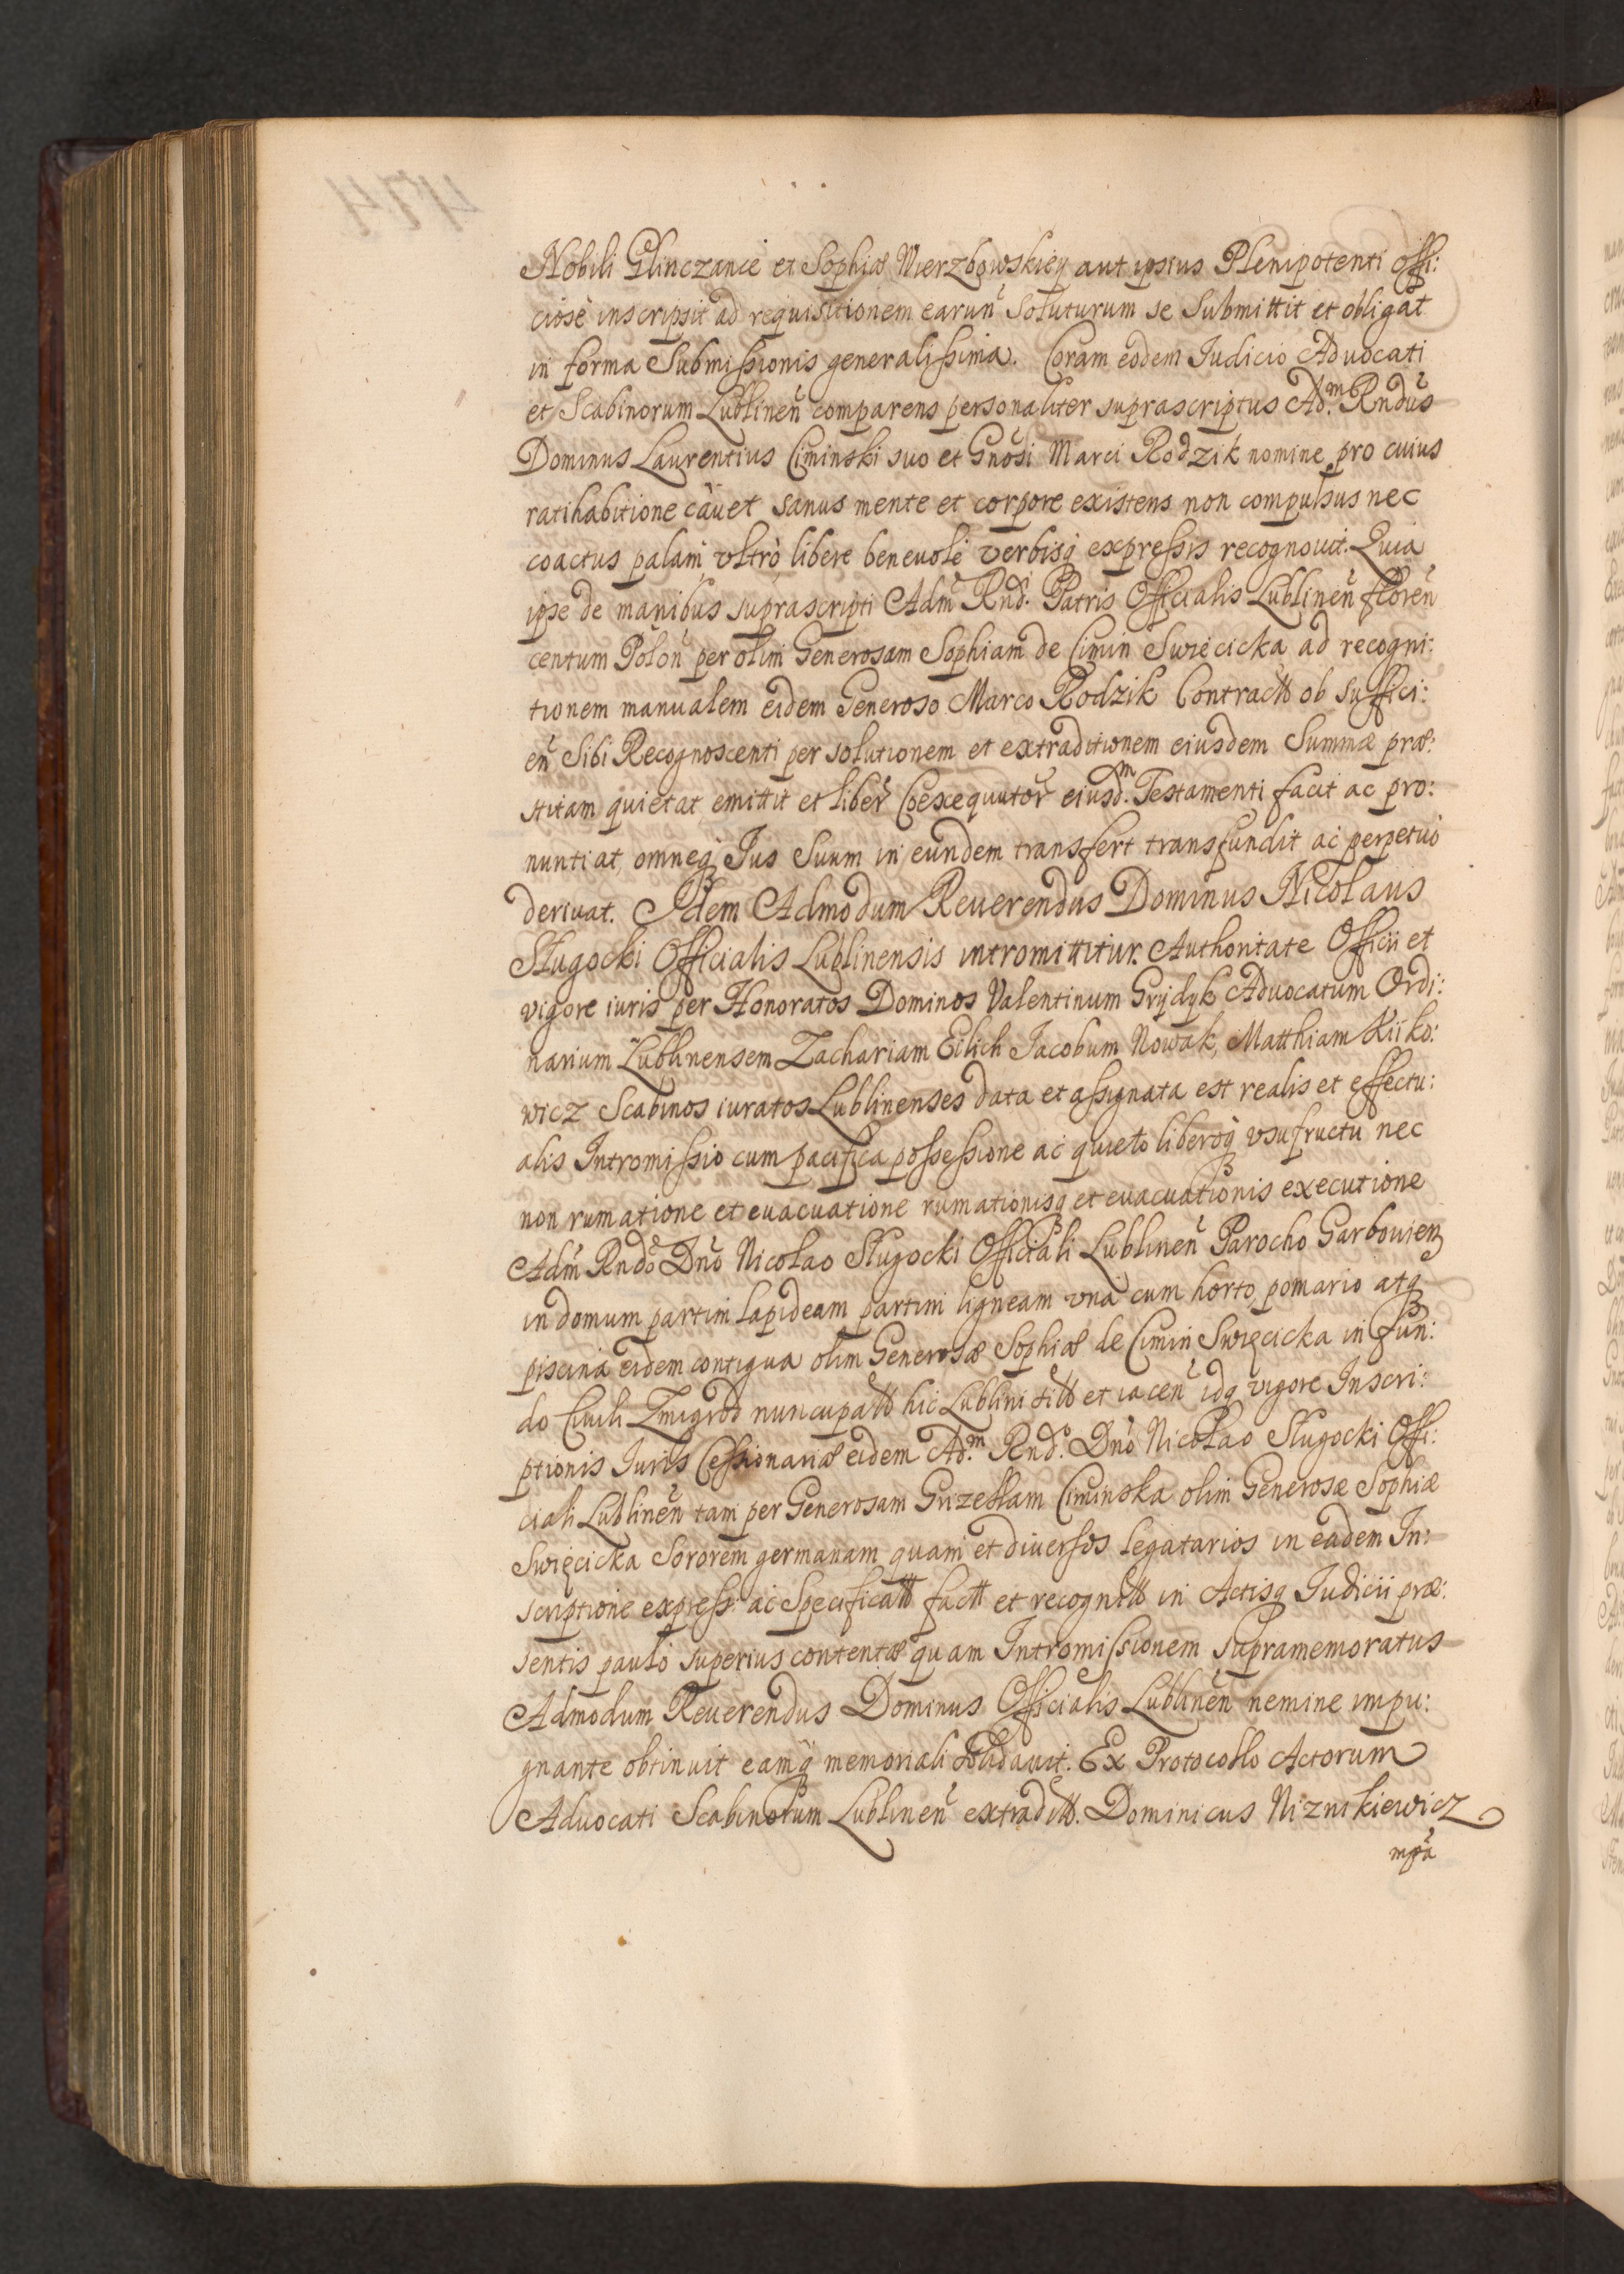 Nobili Glinczance et Sophiæ Mierzbowskiey aut ipsius Plenipotenti offi:
ciosè inscripsit ad requisitionem earun̄ soluturum se submittit et obligat
in forma Submissionis generalissima. Coram eodem Iudicio Advocati
et Scabinorum Lublinen̄ comparens personaliter suprascriptus Ad.m Rndūs
Dominus Laurentius Ciminski suo et Gnōsi Marci Rodzik nomine pro cuius
ratihabitione cauet sanus mente et corpore existens non compulsus nec
coactus palam vltrò libere beneuolè verbisq expressis recognouit. Quia
ipse de manibus suprascripti Adm̄ Rnd.i Patris Officialis Lublinen̄ floren̄
centum Polon̄ per olim Generosam Sophiam de Cimin Swiecicka ad recogni:
tionem manualem eidem Generoso Marco Rodzik Contractt ob suffici:
en̄ sibi Recognoscenti per solutionem et extraditionem eiusdem Summæ præ:
stitam quietat, emittit et liber̄ Coexequutor̄ eiusd.m Testamenti facit ac pro:
nuntiat, omneq Ius Suum in eundem transfert transfundit ac perpetuò
deriuat. Idem Admodum Reuerendus Dominus Nicolaus
Sługocki Officialis Lublinensis intromittitur. Authoritate Officii et
vigore iuris per Honoratos Dominos Valentinum Grydyk Aduocatum Ordi:
narium Lublinensem Zachariam Eilich Iacobum Nowak, Matthiam Kiiko:
wicz Scabinos iuratos Lublinenses data et assignata est realis et effectu:
alis Intromissio cum pacifica possessione ac quieto liberoq vsufructu nec
non rumatione et euacuatione rumationisq et euacuationis executione
Adm̄ Rndō Dnō Nicolao Sługocki Officiali Lublinen̄ Parocho Garbouien
in domum partim lapideam partim ligneam vna cum horto, pomario atq
piscina eidem contigua olim Generosæ Sophiæ de Cimin Swięcicka in fun:
do Ciuili Zmigrod nuncupatt hic Lublini sitt et iacen̄ idq vigore Inscri:
ptionis Iuris Cessionariæ eidem Ad.m Rnd.o Dnō Nicolao Sługocki Offi:
ciali Lublinen̄ tam per Generosam Grizellam Ciminska olim Generosæ Sophiæ
Swięcicka Sororem germanam quam et diuersos legatarios in eadem In:
scriptione express: ac Specificatt factt et recognitt in Actisq Iudicii præ:
sentis paulò superius contentæ quam Intromissionem supramemoratus
Admodum Reuerendus Dominus Officialis Lublinen̄ nemine impu:
gnante obtinuit eamq memoriali solidauit. Ex Protocollo Actorum
Aduocati Scabinorum Lublinen̄ extraditt. Dominicus Niznikiewicz
mpa